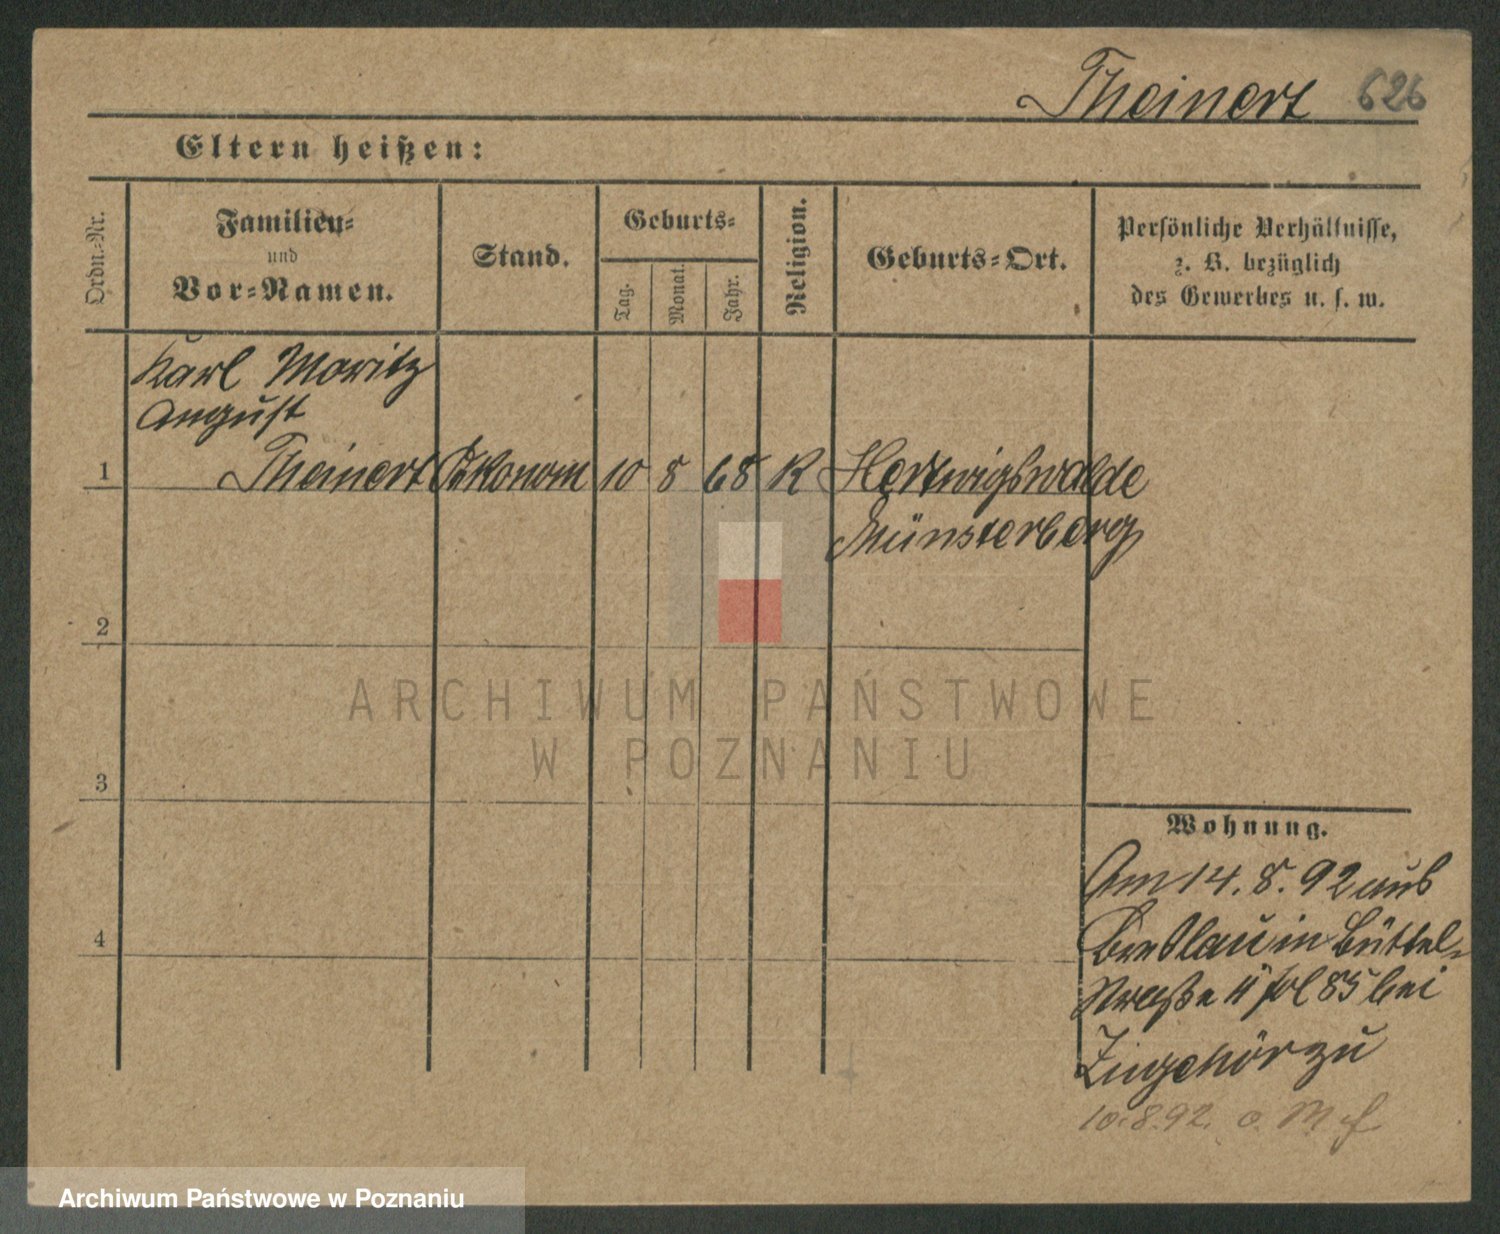 Theinert 626
Eltern heißen:
Ordn.-Nr.
Familien-
und
Vor-Namen.
Stand.
Geburts-
Tag.
Monat.
Jahr.
Religion.
Geburts-Ort.
Persönliche Verhältnisse,
z. B. bezüglich
des Gewerbes u. s. w.
Karl Moritz
August
1 Theinert Ökonom 10 8 68 K Hertwigswalde
Münsterberg
2
ARCHIWUM PAŃSTWOWE
W POZNANIU
3
Wohnung.
Am 14. 8. 92 aus
Breslau in Büttel-
4
straße 11 fol 85 bei
10.8.92.
Archiwum Państwowe w Poznaniu